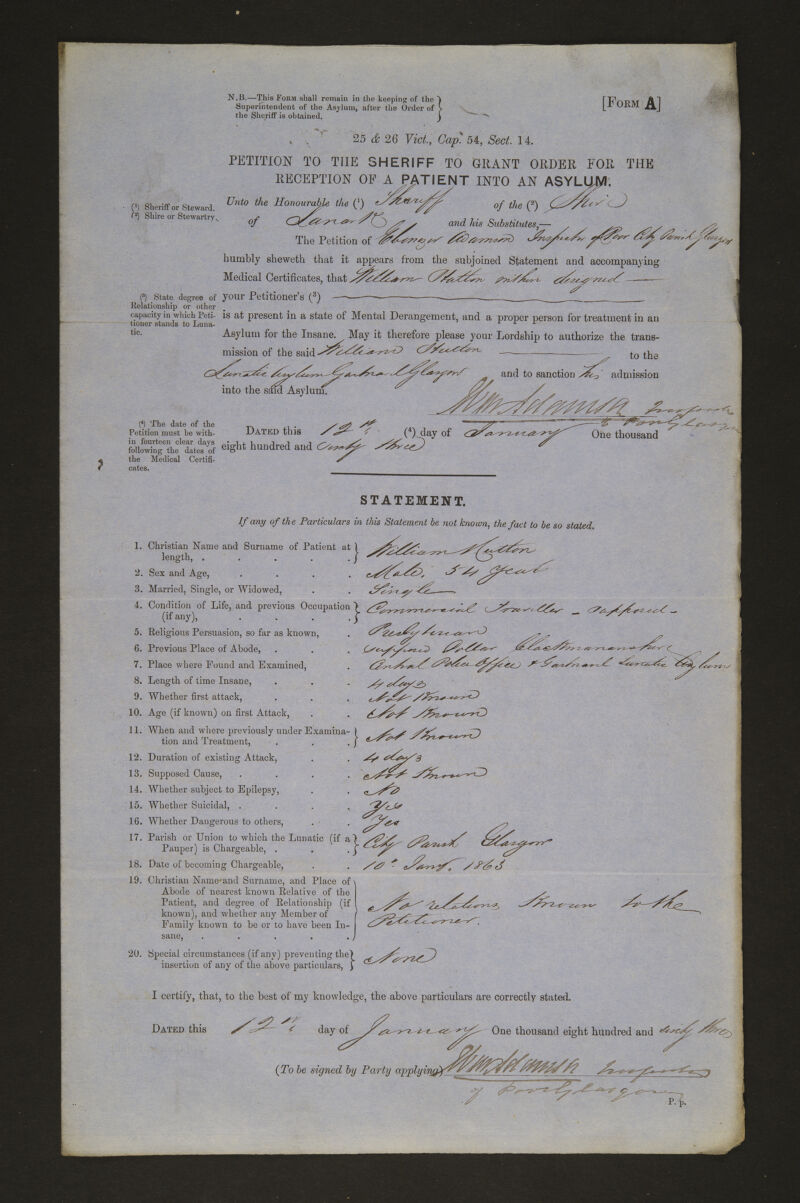 N.B.—This Form shall remain in the keeping of the
Superintendent of the Asylum, after the Order of
the Sheriff is obtained.
[Form A]
25 & 26 Vict., Cap. 54, Sect. 14.
PETITION TO THE SHERIFF TO GRANT ORDER FOR THE
RECEPTION OF A PATIENT INTO AN ASYLUM.
(¹) Sheriff or Steward.
(²) Shire or Stewartry.
Unto the Honourable the (¹) Sheriff of the (²) Shire
of Lanark and his Substitutes,—
The Petition of Ebenezer Adamson Inspector of Poor City Parish Glasgow
humbly sheweth that it appears from the subjoined Statement and accompanying
Medical Certificates, that William Hutton within designed
(³) State degree of
Relationship or other
capacity in which Peti-
tioner stands to Luna-
tic.
your Petitioner's (³)
is at present in a state of Mental Derangement, and a proper person for treatment in an
Asylum for the Insane. May it therefore please your Lordship to authorize the trans-
mission of the said William Hutton to the
Lunatic Asylum Gartnavel Glasgow and to sanction his admission
into the said Asylum.
Adamson Inspector
of Poor Glasgow
(⁴) The date of the
Petition must be with-
in fourteen clear days
following the dates of
the Medical Certifi-
cates.
Dated this 12th (⁴) day of January One thousand
eight hundred and sixty three
STATEMENT.
If any of the Particulars in this Statement be not known, the fact to be so stated.
1. Christian Name and Surname of Patient at
length, . . . . . William Hutton
2. Sex and Age, . . . . Male. 54 Year
3. Married, Single, or Widowed, . . Single
4. Condition of Life, and previous Occupation
(if any), . . . . Commercial Traveller - supposed -
5. Religious Persuasion, so far as known, . Presbyterian
6. Previous Place of Abode, . . . supposed Dollar Clackmananshire
7. Place where Found and Examined, . Central Police Office & Gartnavel Lunatic Asylum
8. Length of time Insane, . . . 4 days
9. Whether first attack, . . . Not Known
10. Age (if known) on first Attack, . . Not Known
11. When and where previously under Examina-
tion and Treatment, . . . Not Known
12. Duration of existing Attack, . . 4 days
13. Supposed Cause, . . . . Not Known
14. Whether subject to Epilepsy, . . No
15. Whether Suicidal, . . . . Yes
16. Whether Dangerous to others, . . Yes
17. Parish or Union to which the Lunatic (if a
Pauper) is Chargeable, . . . City Parish Glasgow
18. Date of becoming Chargeable, . . 10th Jany. 1863
19. Christian Name and Surname, and Place of
Abode of nearest known Relative of the
Patient, and degree of Relationship (if
known), and whether any Member of
Family known to be or to have been In-
sane, . . . . .
No relations known to the
Petitioner.
20. Special circumstances (if any) preventing the
insertion of any of the above particulars, None
I certify, that, to the best of my knowledge, the above particulars are correctly stated.
Dated this 12th day of January One thousand eight hundred and sixty three
(To be signed by Party applying) Adamson Inspector
of Poor Glasgow
P. p.